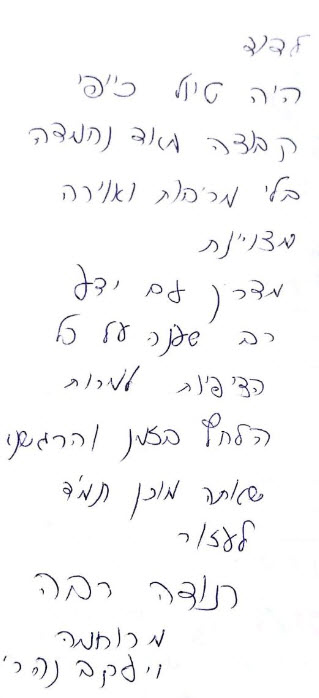 לדוד
היה טיול כייפי
קבוצה מאוד נחמדה
בלי מריבות ואוירה
מצויינת
מדריך עם ידע
רב שענה על כל
הציפיות למרות
הלחץ בזמן והרגשנו
שאתה מוכן תמיד
לעזור
תודה רבה
מרוחמה
ויעקב נהרי